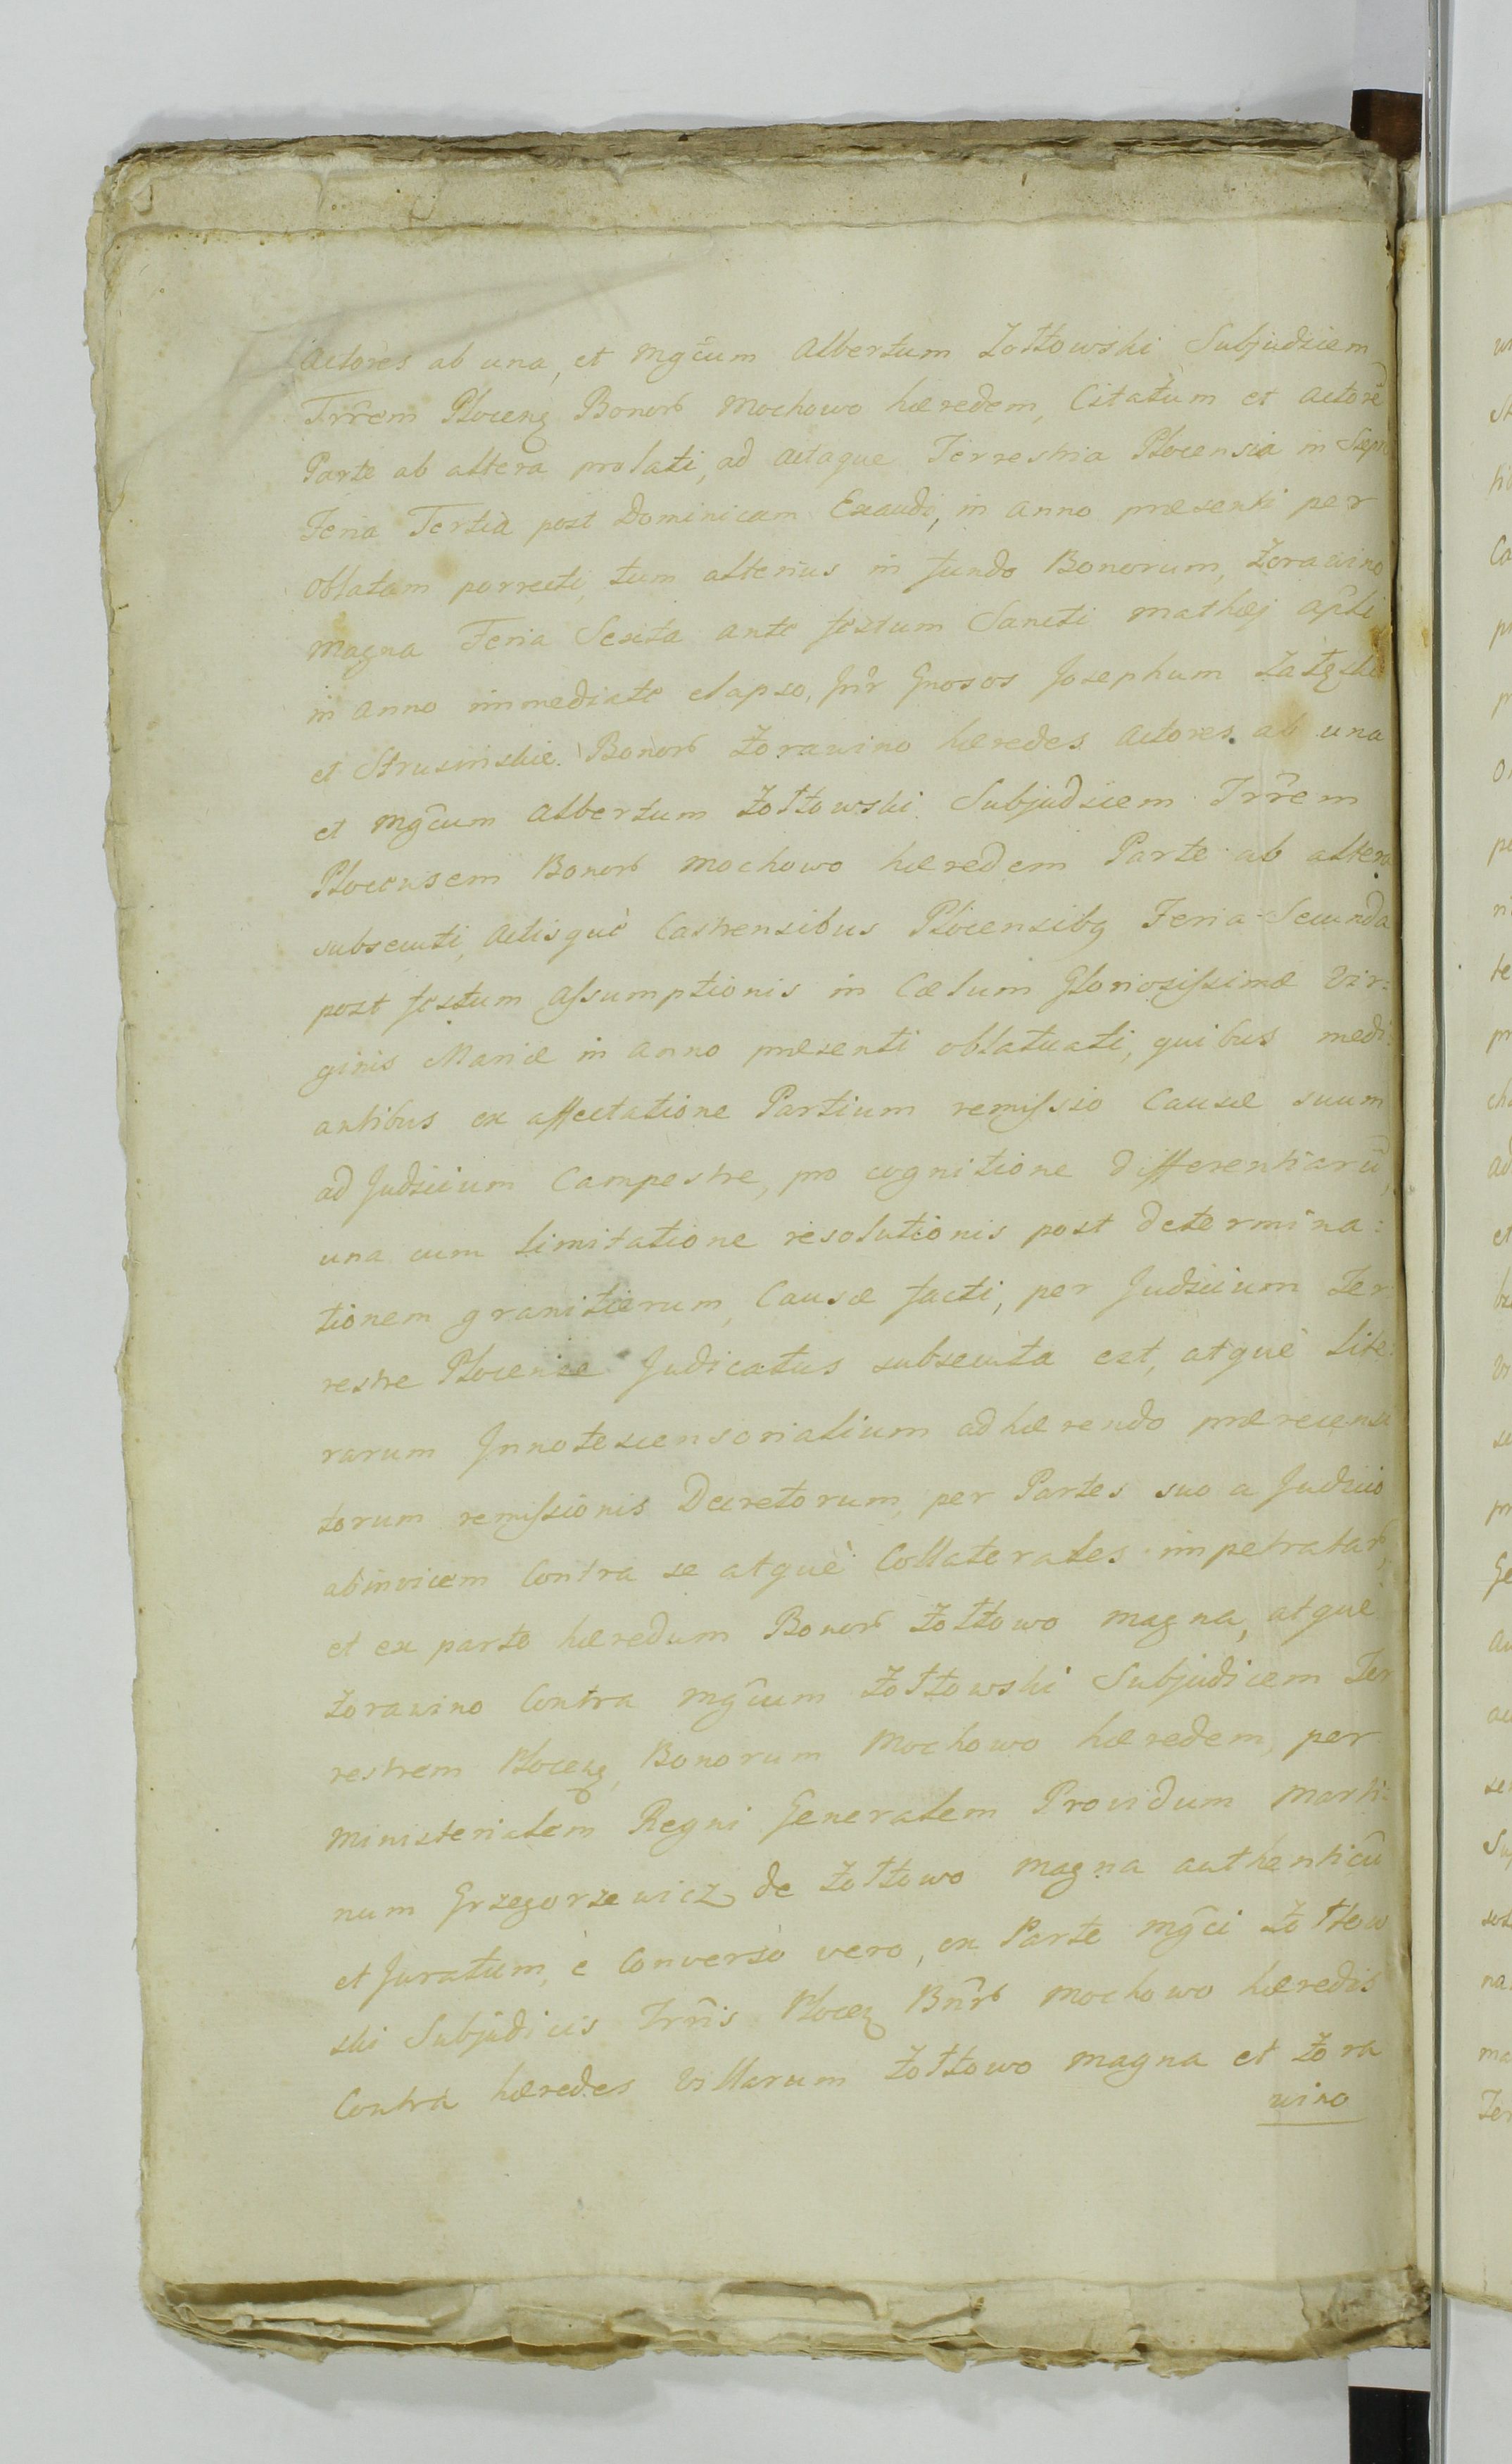 Actores ab una, et Mgcum Albertum Żółtowski Subjudicem
Trrem Plocens Bonor Mochowo hæredem, Citatum et Actorē
Parte ab altera prolati, ad Actaque Terrestria Plocensia in
Feria Tertia post Dominicam Exaudi, in Anno præsenti per
Oblatam porrecti, tum alterius in fundo Bonorum, Żorawino
Magna Feria Sexta ante festum Sancti Mathæj Apli
in Anno immediate elapso, Intr Gnosos Josephum
et Strusinskie Bonor Żorawino hæredes Actores ab una
et Mgcum Albertum Żołtowski Subjudicem Trrem
Plocensem Bonor Mochowo hæredem Parte ab altera
subsecuti, Actisquè Castrensibus Plocensibq Feria Secunda
post festum Assumptionis in Cœlum Gloriosissimæ Vir=
ginis Mariæ in Anno præsenti oblatuati, quibus medi:
antibus ex affectatione Partium remissio Causæ suum
ad Judicium Campestre, pro cognitione differentiarū,
una cum limitatione resolutionis post determina:
tionem granitierum, Causæ facti, per Judicium Ter:
restre Plocense Judicatus subsecuta est, atquè lite:
rarum Innotescensorialium adhærendo præcensi
torum remissionis Decretorum, per Partes suo a Judicio
abinvicem Contra se atquè Collaterales impetratar,
et ex parte hæredum Bonor Żołtowo Magna, atquè
Żorawino Contra Mgcum Żołtowski Subjudicem Ter
restrem Plocens, Bonorum Mochowo hæredem, per
Ministerialem Regni Generalem Providum Marti:
num Grzegorzewicz de Żołtowo Magna authenticū
et Juratum, è Converso vero, ex Parte Mgci Żołtow
ski Subjudicis Trris Plocen Bnr Mochowo hæredis
Contra hæredes Villarum Żołtowo Magna et Żora
wino